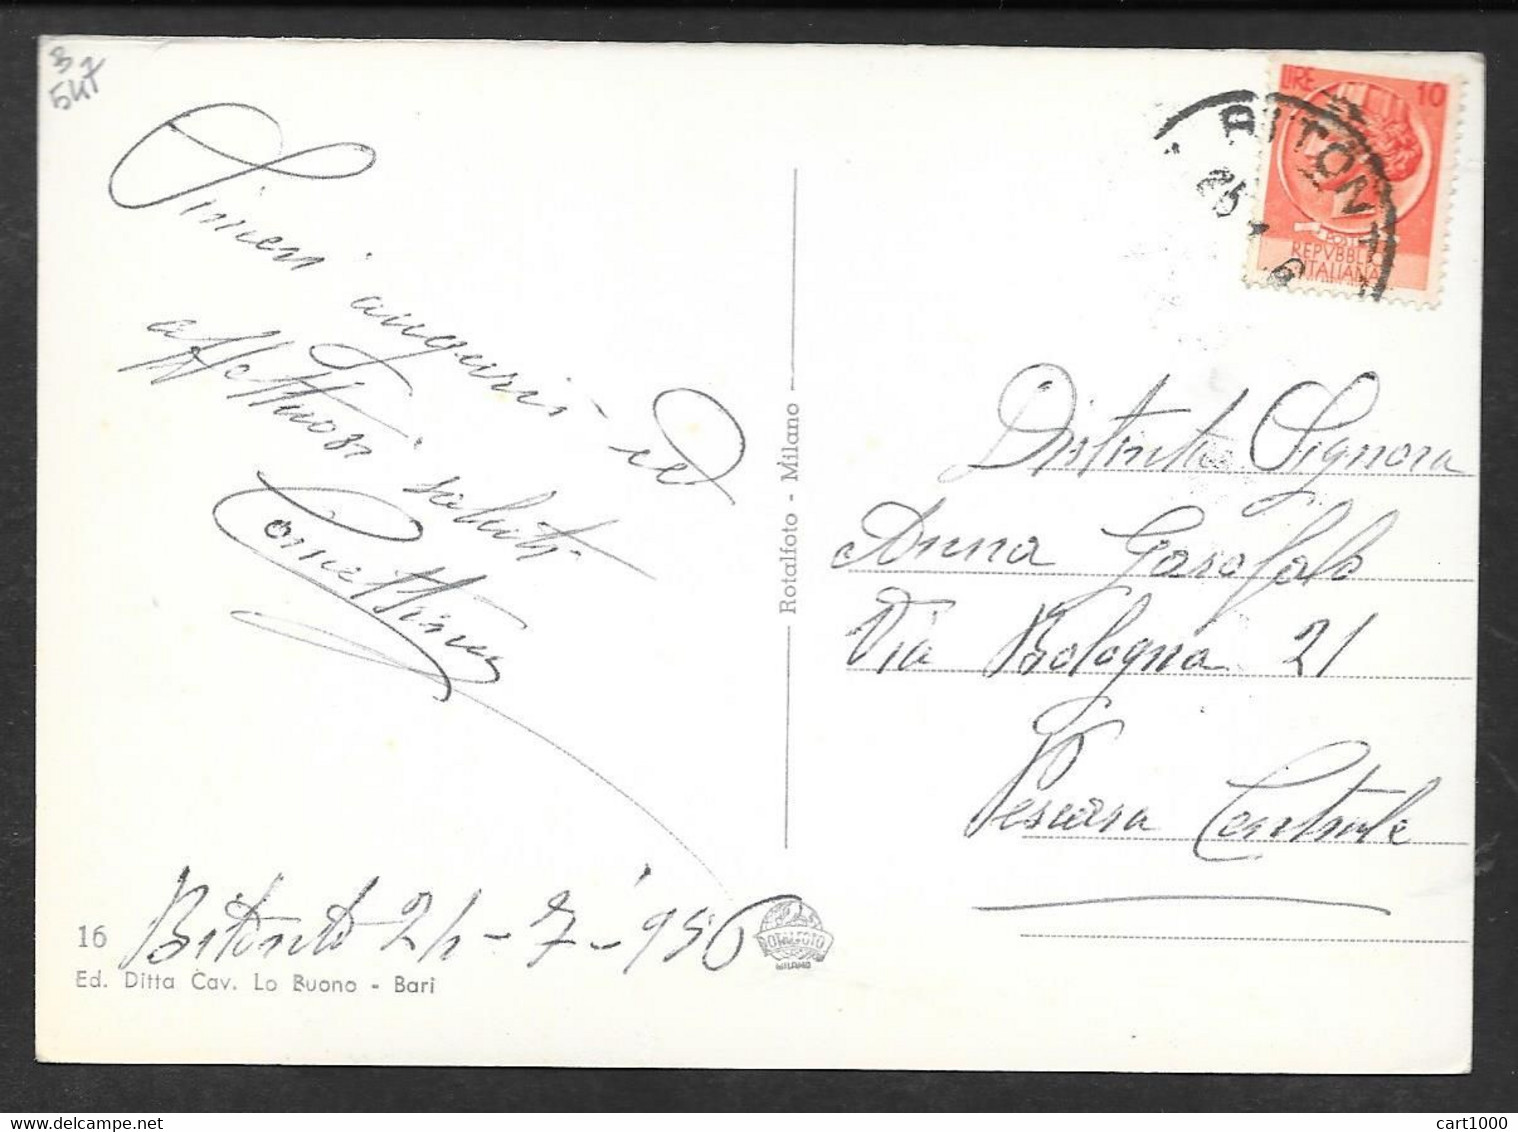 3 7
547
Sinceri auguri ed
affettuosi saluti
Comettina
Bitonto 24-7-1956
16
Ed. Ditta Cav. Lo Buono - Bari
Rotalfoto - Milano
ROTALFOTO
MILANO
LIRE 10
POSTE
REPVBBLICA
ITALIANA
BITONTO
25 7
Distinta Signora
Anna Garofalo
Via Bologna 21
Pescara Centrale
cart1000